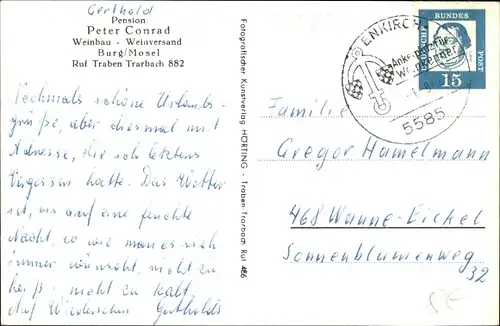 Gerthold
Pension
Peter Conrad
Weinbau - Weinversand
Burg/Mosel
Ruf Traben Trarbach 882
Nochmals schöne Urlaubs-
grüße, aber diesmal mit
Adresse, die ich letztens
vergessen hatte. Das Wetter
ist, bis auf eine feuchte
Nacht, so wie man es sich
immer wünscht, nicht zu
heiß - nicht zu kalt.
Auf Wiedersehen Gertholds
Fotografischer Kunstverlag HÖRTING - Traben-Trarbach Ruf 486
ENKIRCH
Ankerplatz für
Weinkenner
5585
DEUTSCHE BUNDESPOST
15
Familie
Gregor Hamelmann
468 Wanne-Eickel
Sonnenblumenweg
32